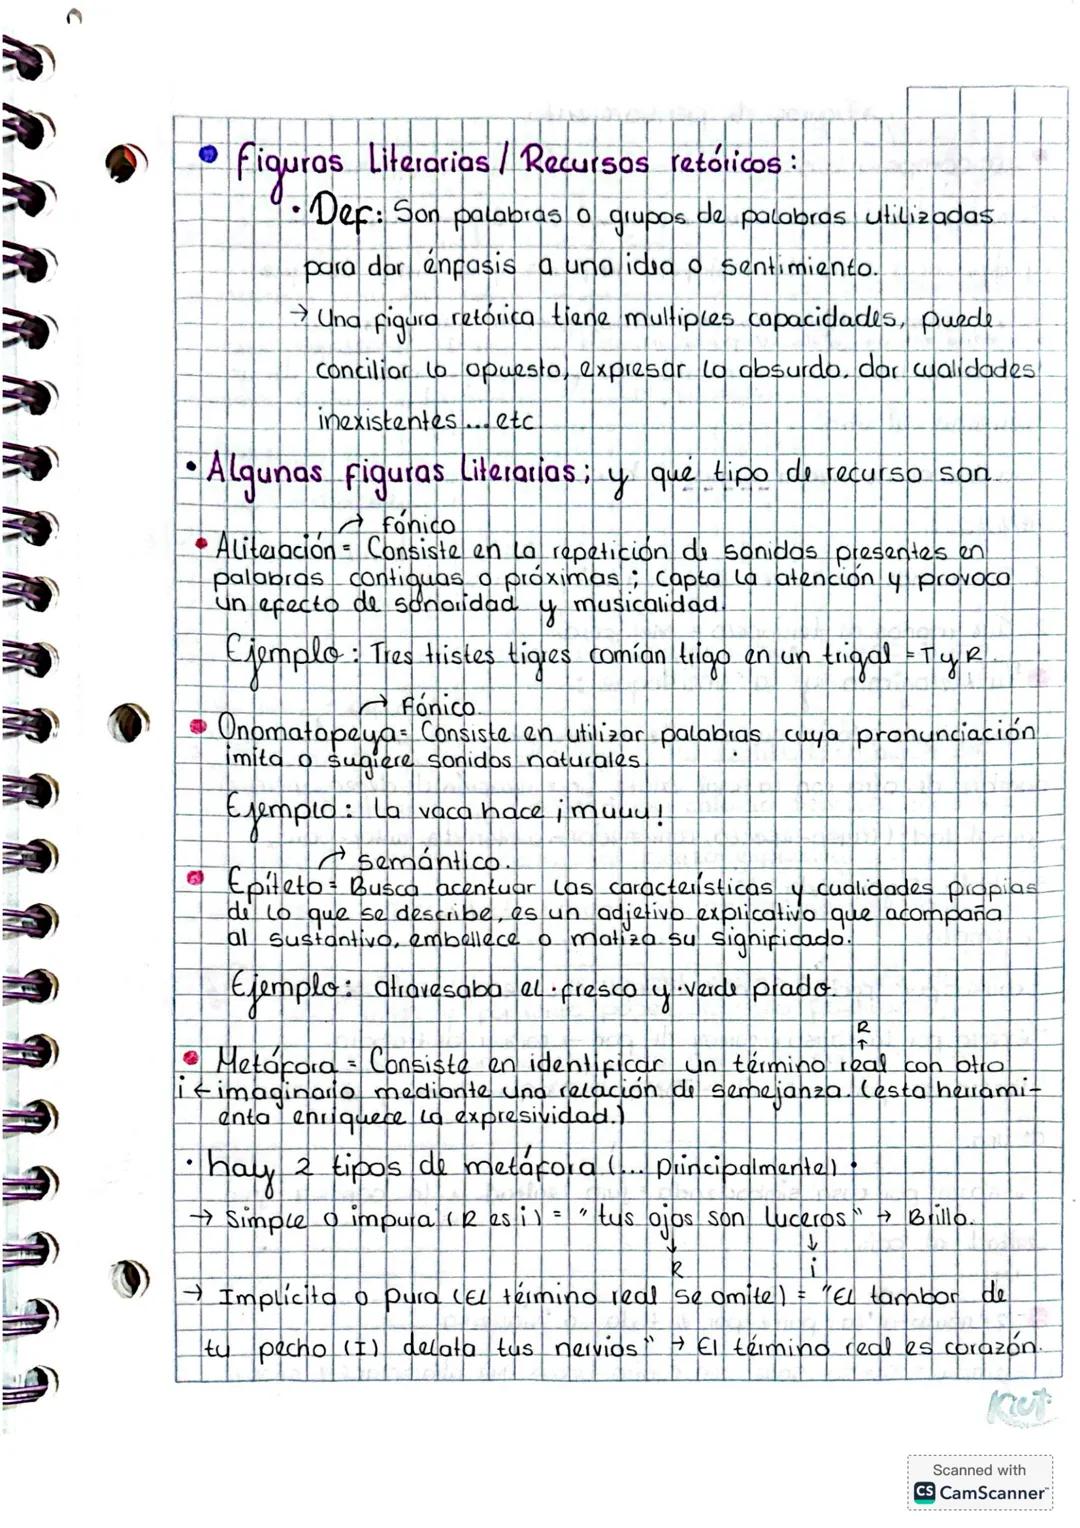 Figuras Literarias / Recursos retóricos:
· Def: Son palabras o grupos de palabras utilizadas
para dar énfasis a una idea o sentimiento.
→ Una figura retórica tiene multiples capacidades, puede
conciliar lo opuesto, expresar lo absurdo, dar cualidades
inexistentes... etc.
· Algunas figuras Literarias; y qué tipo de recurso son.
→ fónico
· Aliteración = Consiste en la repetición de sonidos presentes en
palabras contiguas o próximas; Capta la atención y provoca
un efecto de sonoridad y musicalidad.
Ejemplo: Tres tristes tigres comían trigo en un trigal = T y R.
→ Fónico.
· Onomatopeya = Consiste en utilizar palabras cuya pronunciación
imita o sugiere sonidos naturales.
Ejemplo: La vaca hace ¡muuu!
→ semántico.
· Epíteto = Busca acentuar las características y cualidades propias
de lo que se describe, es un adjetivo explicativo que acompaña
al sustantivo, embellece o matiza su significado.
Ejemplo: atravesaba el · fresco y · verde prado.
R
↑
· Metáfora = Consiste en identificar un término real con otro
i ← imaginario mediante una relación de semejanza. (esta herrami-
enta enriquece la expresividad.)
· hay 2 tipos de metáfora (... principalmente).
→ Simple o impura (R es i) = "tus ojos son luceros" → Brillo.
↓ ↓
R i
→ Implícita o pura (El término real se omite) = "El tambor de
tu pecho (I) delata tus nervios" → El término real es corazón.
Scanned with
CS CamScanner